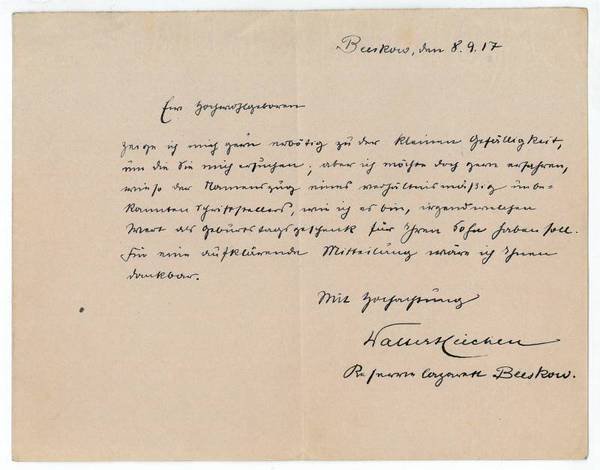 Beeskow, den 8.9.17
Ew Hochwohlgeboren
zeige ich mich gern erbötig zu der kleinen Gefälligkeit,
um die Sie mich ersuchen; aber ich möchte doch gern erfahren,
wieso der Namenszug eines verhältnismäßig unbe-
kannten Schriftstellers, wie ich es bin, irgendwelchen
Wert als Geburtstagsgeschenk für Ihren Sohn haben soll.
Für eine aufklärende Mitteilung wäre ich Ihnen
dankbar.
Mit Hochachtung
Walter
Reservelazarett Beeskow.